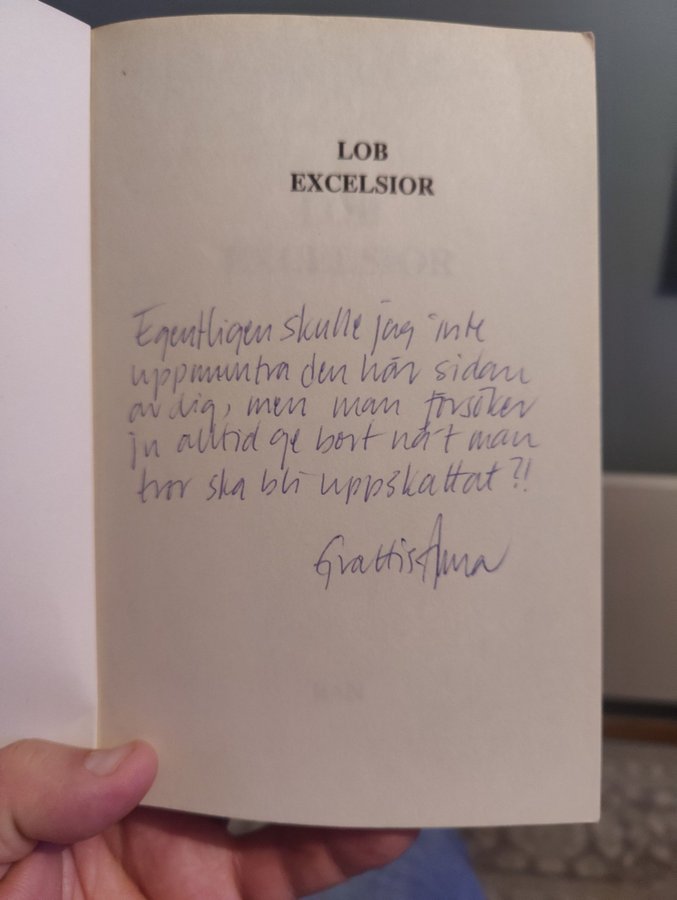 LOB
EXCELSIOR
Egentligen skulle jag inte
uppmuntra den här sidan
av dig, men man försöker
ju alltid ge bort nåt man
tror ska bli uppskattat?!
Grattis Anna